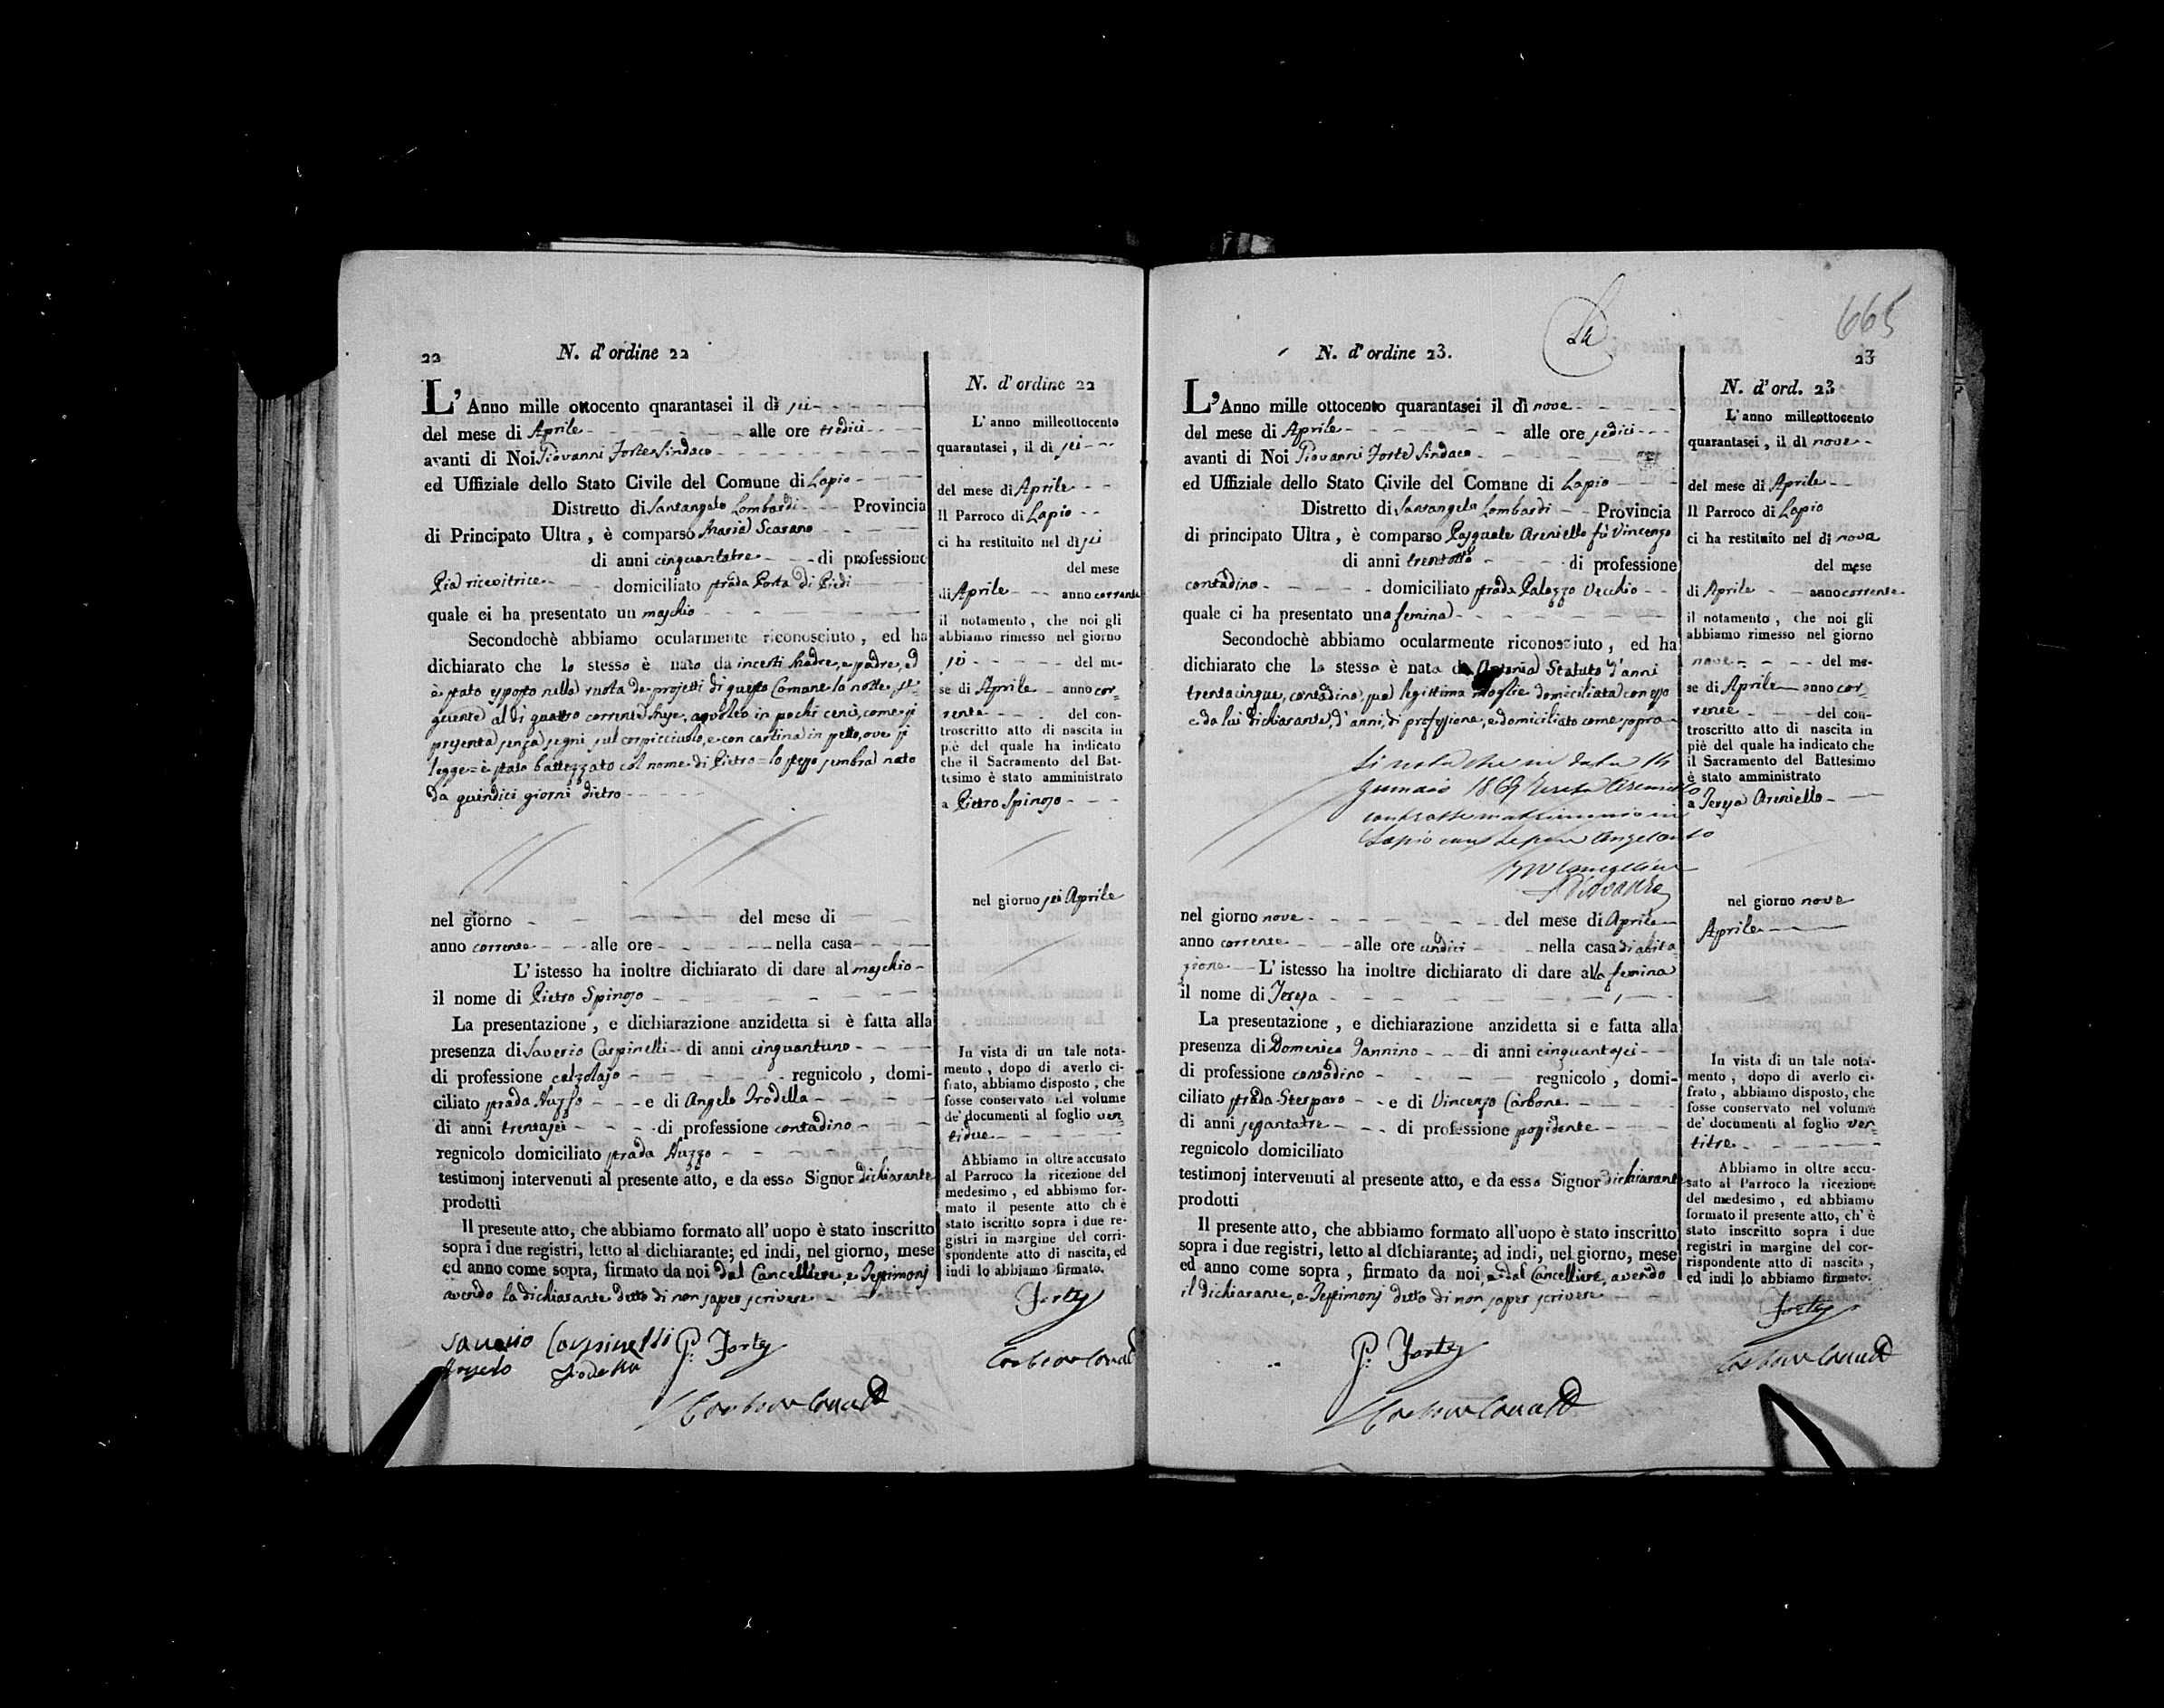 22
N. d'ordine 22
L'Anno mille ottocento qnarantasei il dì sei
del mese di Aprile alle ore tredici
avanti di Noi Giovanni Forte Sindaco
ed Uffiziale dello Stato Civile del Comune di Lapio
Distretto di Santangelo Lombardi Provincia
di Principato Ultra, è comparso Maria Scarano
di anni cinquantatre di professione
Pia ricevitrice domiciliato strada Porta di Piedi
quale ci ha presentato un maschio
Secondochè abbiamo ocularmente riconosciuto, ed ha
dichiarato che lo stesso è nato da incerti Madre, e padre, ed
è stato esposto nella ruota de projetti di questo Comune la notte se-
guente al di quattro corrente Mese, avvolto in pochi cenci, come si
presenta senza segni sul corpicciuolo, e con cartina in petto, ove si
legge = è stato battezzato col nome di Pietro = lo stesso sembra nato
da quindici giorni dietro
nel giorno del mese di
anno corrente alle ore nella casa
L'istesso ha inoltre dichiarato di dare al maschio
il nome di Pietro Spinoso
La presentazione, e dichiarazione anzidetta si è fatta alla
presenza di Saverio Carpinelli di anni cinquantuno
di professione calzolajo regnicolo, domi-
ciliato strada e di Angelo Trodella
di anni trentasei di professione contadino
regnicolo domiciliato strada
testimonj intervenuti al presente atto, e da esso Signor dichiarante
prodotti
Il presente atto, che abbiamo formato all'uopo è stato inscritto
sopra i due registri, letto al dichiarante; ed indi, nel giorno, mese
ed anno come sopra, firmato da noi dal Cancelliere, e Testimonj
avendo la dichiarante detto di non saper scrivere
Saverio Carpinelli G: Forte
Angelo Trodella
N. d'ordine 22
L'anno milleottocento
quarantasei, il dì sei
del mese di Aprile
Il Parroco di Lapio
ci ha restituito nel dì sei
del mese
di Aprile anno corrente
il notamento, che noi gli
abbiamo rimesso nel giorno
sei del me-
se di Aprile anno cor-
rente del con-
troscritto atto di nascita in
piè del quale ha indicato
che il Sacramento del Bat-
tesimo è stato amministrato
a Pietro Spinoso
nel giorno sei Aprile
In vista di un tale nota-
mento, dopo di averlo ci-
frato, abbiamo disposto, che
fosse conservato nel volume
de' documenti al foglio ven
tidue
Abbiamo in oltre accusato
al Parroco la ricezione del
medesimo, ed abbiamo for-
mato il pesente atto ch'è
stato iscritto sopra i due re-
gistri in margine del corri-
spondente atto di nascita, ed
indi lo abbiamo firmato.
Forte
665
23
N. d'ordine 23.
L'Anno mille ottocento quarantasei il dì nove
del mese di Aprile alle ore sedici
avanti di Noi Giovanni Forte Sindaco
ed Uffiziale dello Stato Civile del Comune di Lapio
Distretto di Santangelo Lombardi Provincia
di principato Ultra, è comparso Pasquale Areniello fù Vincenzo
di anni trentotto di professione
contadino domiciliato strada Palazzo Vecchio
quale ci ha presentato una femina
Secondochè abbiamo ocularmente riconosciuto, ed ha
dichiarato che la stessa è nata da Antonia Statuto d'anni
trentacinque, contadina sua legittima moglie domiciliata con esso
e da lui dichiarante, d'anni, di professione, e domiciliato come sopra
Si nota che in data 14
gennaio 1869 Teresa Areniello
contrasse matrimonio in
Lapio con
nel giorno nove del mese di Aprile
anno corrente alle ore undici nella casa di abita
zione L'istesso ha inoltre dichiarato di dare alla femina
il nome di Teresa
La presentazione, e dichiarazione anzidetta si e fatta alla
presenza di Domenico Iannino di anni cinquantasei
di professione contadino regnicolo, domi-
ciliato strada Sterparo e di Vincenzo Carbone
di anni settantatre di professione possidente
regnicolo domiciliato
testimonj intervenuti al presente atto, e da esso Signor dichiarante
prodotti
Il presente atto, che abbiamo formato all'uopo è stato inscritto
sopra i due registri, letto al dichiarante; ad indi, nel giorno, mese
ed anno come sopra, firmato da noi, e dal Cancelliere, avendo
il dichiarante, e Testimonj detto di non saper scrivere
G: Forte
N. d'ord. 23
L'anno milleottocento
quarantasei, il dì nove
del mese di Aprile
Il Parroco di Lapio
ci ha restituito nel dì nove
del mese
di Aprile anno corrente
il notamento, che noi gli
abbiamo rimesso nel giorno
nove del me-
se di Aprile anno cor-
rente del con-
troscritto atto di nascita in
piè del quale ha indicato che
il Sacramento del Battesimo
è stato amministrato
a Teresa Areniello
nel giorno nove
Aprile
In vista di un tale nota-
mento, dopo di averlo ci-
frato, abbiamo disposto, che
fosse conservato nel volume
de' documenti al foglio ven-
titre
Abbiamo in oltre accu-
sato al Parroco la ricezione
del medesimo, ed abbiamo
formato il presente atto, ch'è
stato inscritto sopra i due
registri in margine del cor-
rispondente atto di nascita,
ed indi lo abbiamo firmato.
Forte